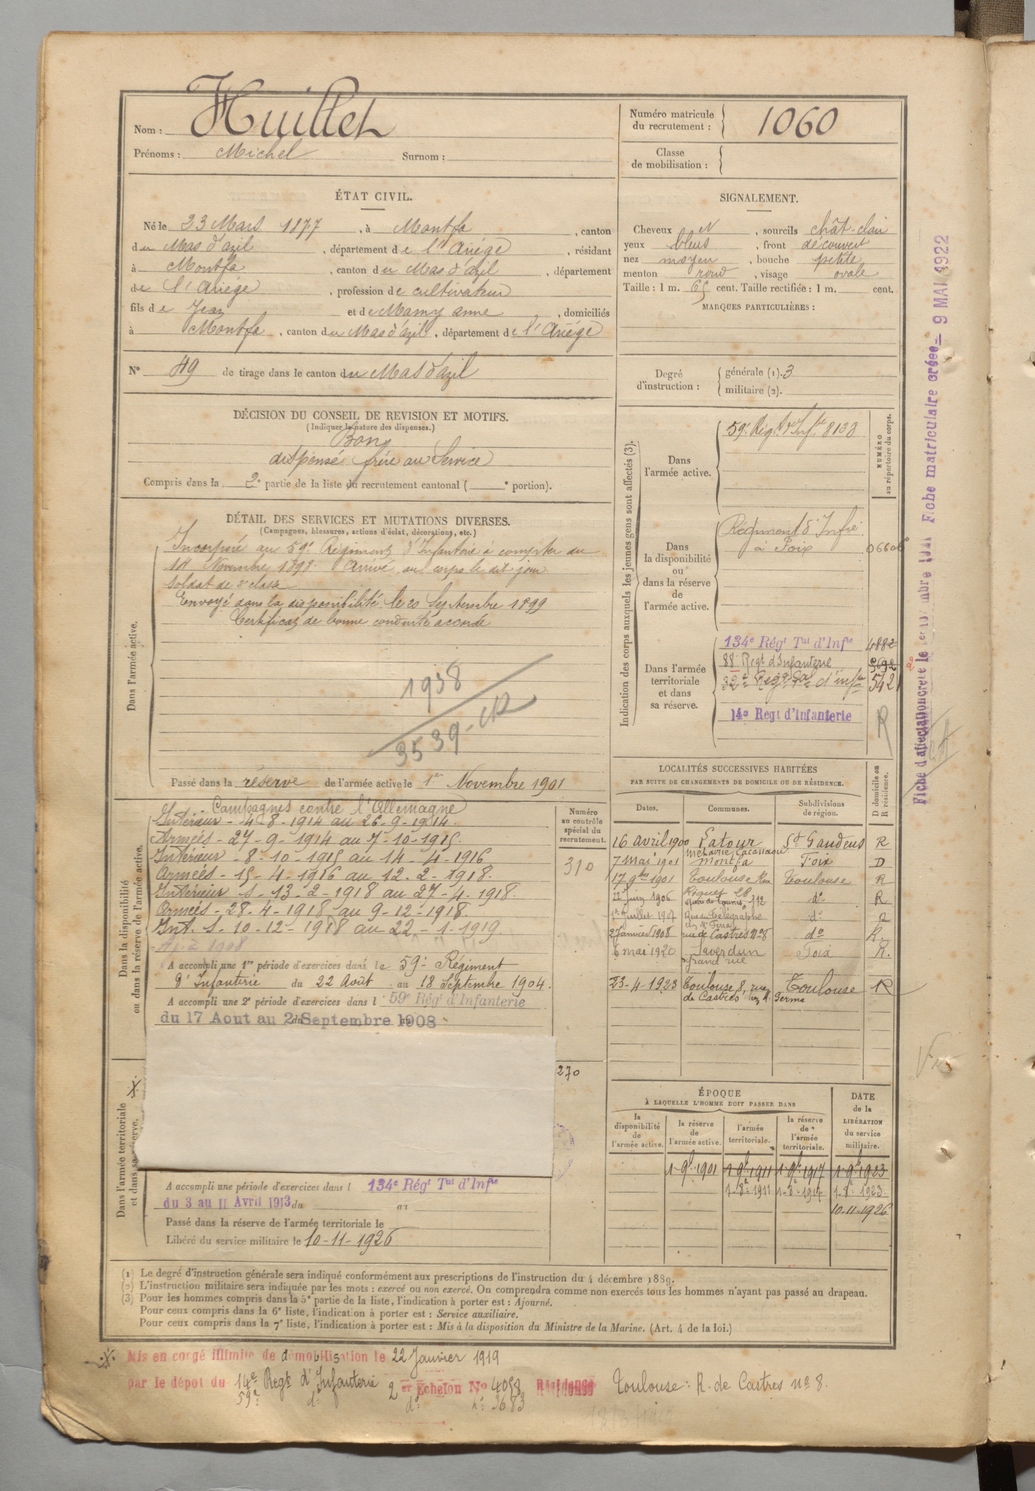 Nom : Huillet
Prénoms : Michel Surnom :
Numéro matricule du recrutement : 1060
Classe de mobilisation :
ÉTAT CIVIL.
Né le 23 Mars 1877, à Montfa, canton
du Mas d'azil, département de l'Ariége, résidant
à Montfa, canton du Mas d'azil, département
de l'Ariége, profession de cultivateur
fils de Jean et de Mamy anne, domiciliés
à Montfa, canton du Mas d'azil, département de l'Ariége
N° 49 de tirage dans le canton du Mas d'azil
SIGNALEMENT.
Cheveux N, sourcils chât clair
yeux bleus, front découvert
nez moyen, bouche petite
menton rond, visage ovale
Taille : 1 m. 65 cent. Taille rectifiée : 1 m. cent.
MARQUES PARTICULIÈRES :
Degré d'instruction : générale (1). 3
militaire (2).
DÉCISION DU CONSEIL DE REVISION ET MOTIFS.
(Indiquer la nature des dispenses.)
Bon
dispensé frère au Service
Compris dans la 2e partie de la liste du recrutement cantonal ( e portion).
DÉTAIL DES SERVICES ET MUTATIONS DIVERSES.
(Campagnes, blessures, actions d'éclat, décorations, etc.)
Dans l'armée active.
Incorporé au 59e Régiment d'Infanterie à compter du
Novembre 1898. Arrivé au corps le dit jour
soldat de 2e classe
Envoyé dans la disponibilité le 20 Septembre 1899
Certificat de bonne conduite accordé
1938
3539
Passé dans la réserve de l'armée active le 1er Novembre 1901
Indication des corps auxquels les jeunes gens sont affectés (3).
NUMÉRO au répertoire du corps.
Dans l'armée active.
59e Régt d'Infie 8133
Dans la disponibilité ou dans la réserve de l'armée active.
Régiment d'Infie
à Foix
Dans l'armée territoriale et dans sa réserve.
134e Régt Tal d'Infie 4882
88e Regt d'Infanterie
542
14e Regt d'Infanterie R
Dans la disponibilité ou dans la réserve de l'armée active.
Campagnes contre l'Allemagne
Intérieur - 4-8-1914 au 26-9-1914.
Armées - 27-9-1914 au 7-10-1915.
Intérieur - 8-10-1915 au 14-4-1916.
Armées - 15-4-1916 au 12-2-1918.
Intérieur - 13-2-1918 au 27-4-1918.
Armées - 28-4-1918 au 9-12-1918.
Int. S. 10-12-1918 au 22-1-1919
A accompli une 1re période d'exercices dans le 59e Régiment
d'Infanterie du 22 Août au 18 Septembre 1904.
A accompli une 2e période d'exercices dans l 59e Rég d'Infanterie
du 17 Aout au Septembre 1908
Numéro au contrôle spécial du recrutement.
310
270
LOCALITÉS SUCCESSIVES HABITÉES
PAR SUITE DE CHANGEMENTS DE DOMICILE OU DE RÉSIDENCE.
Dates. Communes. Subdivisions de région. D domicile ou R résidence.
16 avril 1900 Latour St Gaudens R
7 mai 1901 Montfa Foix D
17 9bre 1901 Toulouse Toulouse R
1906 do R
1er Juillet 1907 do R
27 Janvier 1908 rue de Castres no 8 do R.
6 mai 1920 Saverdun Foix R.
grand rue
23-4-1923 Toulouse 8, rue Toulouse R
de Castres
ÉPOQUE
À LAQUELLE L'HOMME DOIT PASSER DANS
la disponibilité de l'armée active. la réserve de l'armée active. l'armée territoriale. la réserve de l'armée territoriale. DATE de la LIBÉRATION du service militaire.
1-9e 1901 1-9e 1911 1-9e 1917 1-9e 1923
10-11-1926
Dans l'armée territoriale et dans sa réserve.
A accompli une période d'exercices dans l 134e Régt Tal d'Infie
du 3 au 11 Avril 1913 du au
Passé dans la réserve de l'armée territoriale le
Libéré du service militaire le 10-11-1926
(1) Le degré d'instruction générale sera indiqué conformément aux prescriptions de l'instruction du 4 décembre 1889.
(2) L'instruction militaire sera indiquée par les mots : exercé ou non exercé. On comprendra comme non exercés tous les hommes n'ayant pas passé au drapeau.
(3) Pour les hommes compris dans la 5e partie de la liste, l'indication à porter est : Ajourné.
Pour ceux compris dans la 6e liste, l'indication à porter est : Service auxiliaire.
Pour ceux compris dans la 7e liste, l'indication à porter est : Mis à la disposition du Ministre de la Marine. (Art. 4 de la loi.)
Mis en congé illimité de démobilisation le 22 Janvier 1919
par le dépôt du 14e Regt d'Infanterie 2er Echelon No 4098 Résidence Toulouse : R. de Castres no 8.
59e do do no 3683
Fiche matriculaire créée 9 MAI 1922